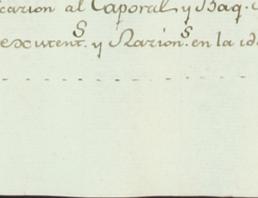 cavion al Caporal y Baq.
existent.s y Narion.s en la id